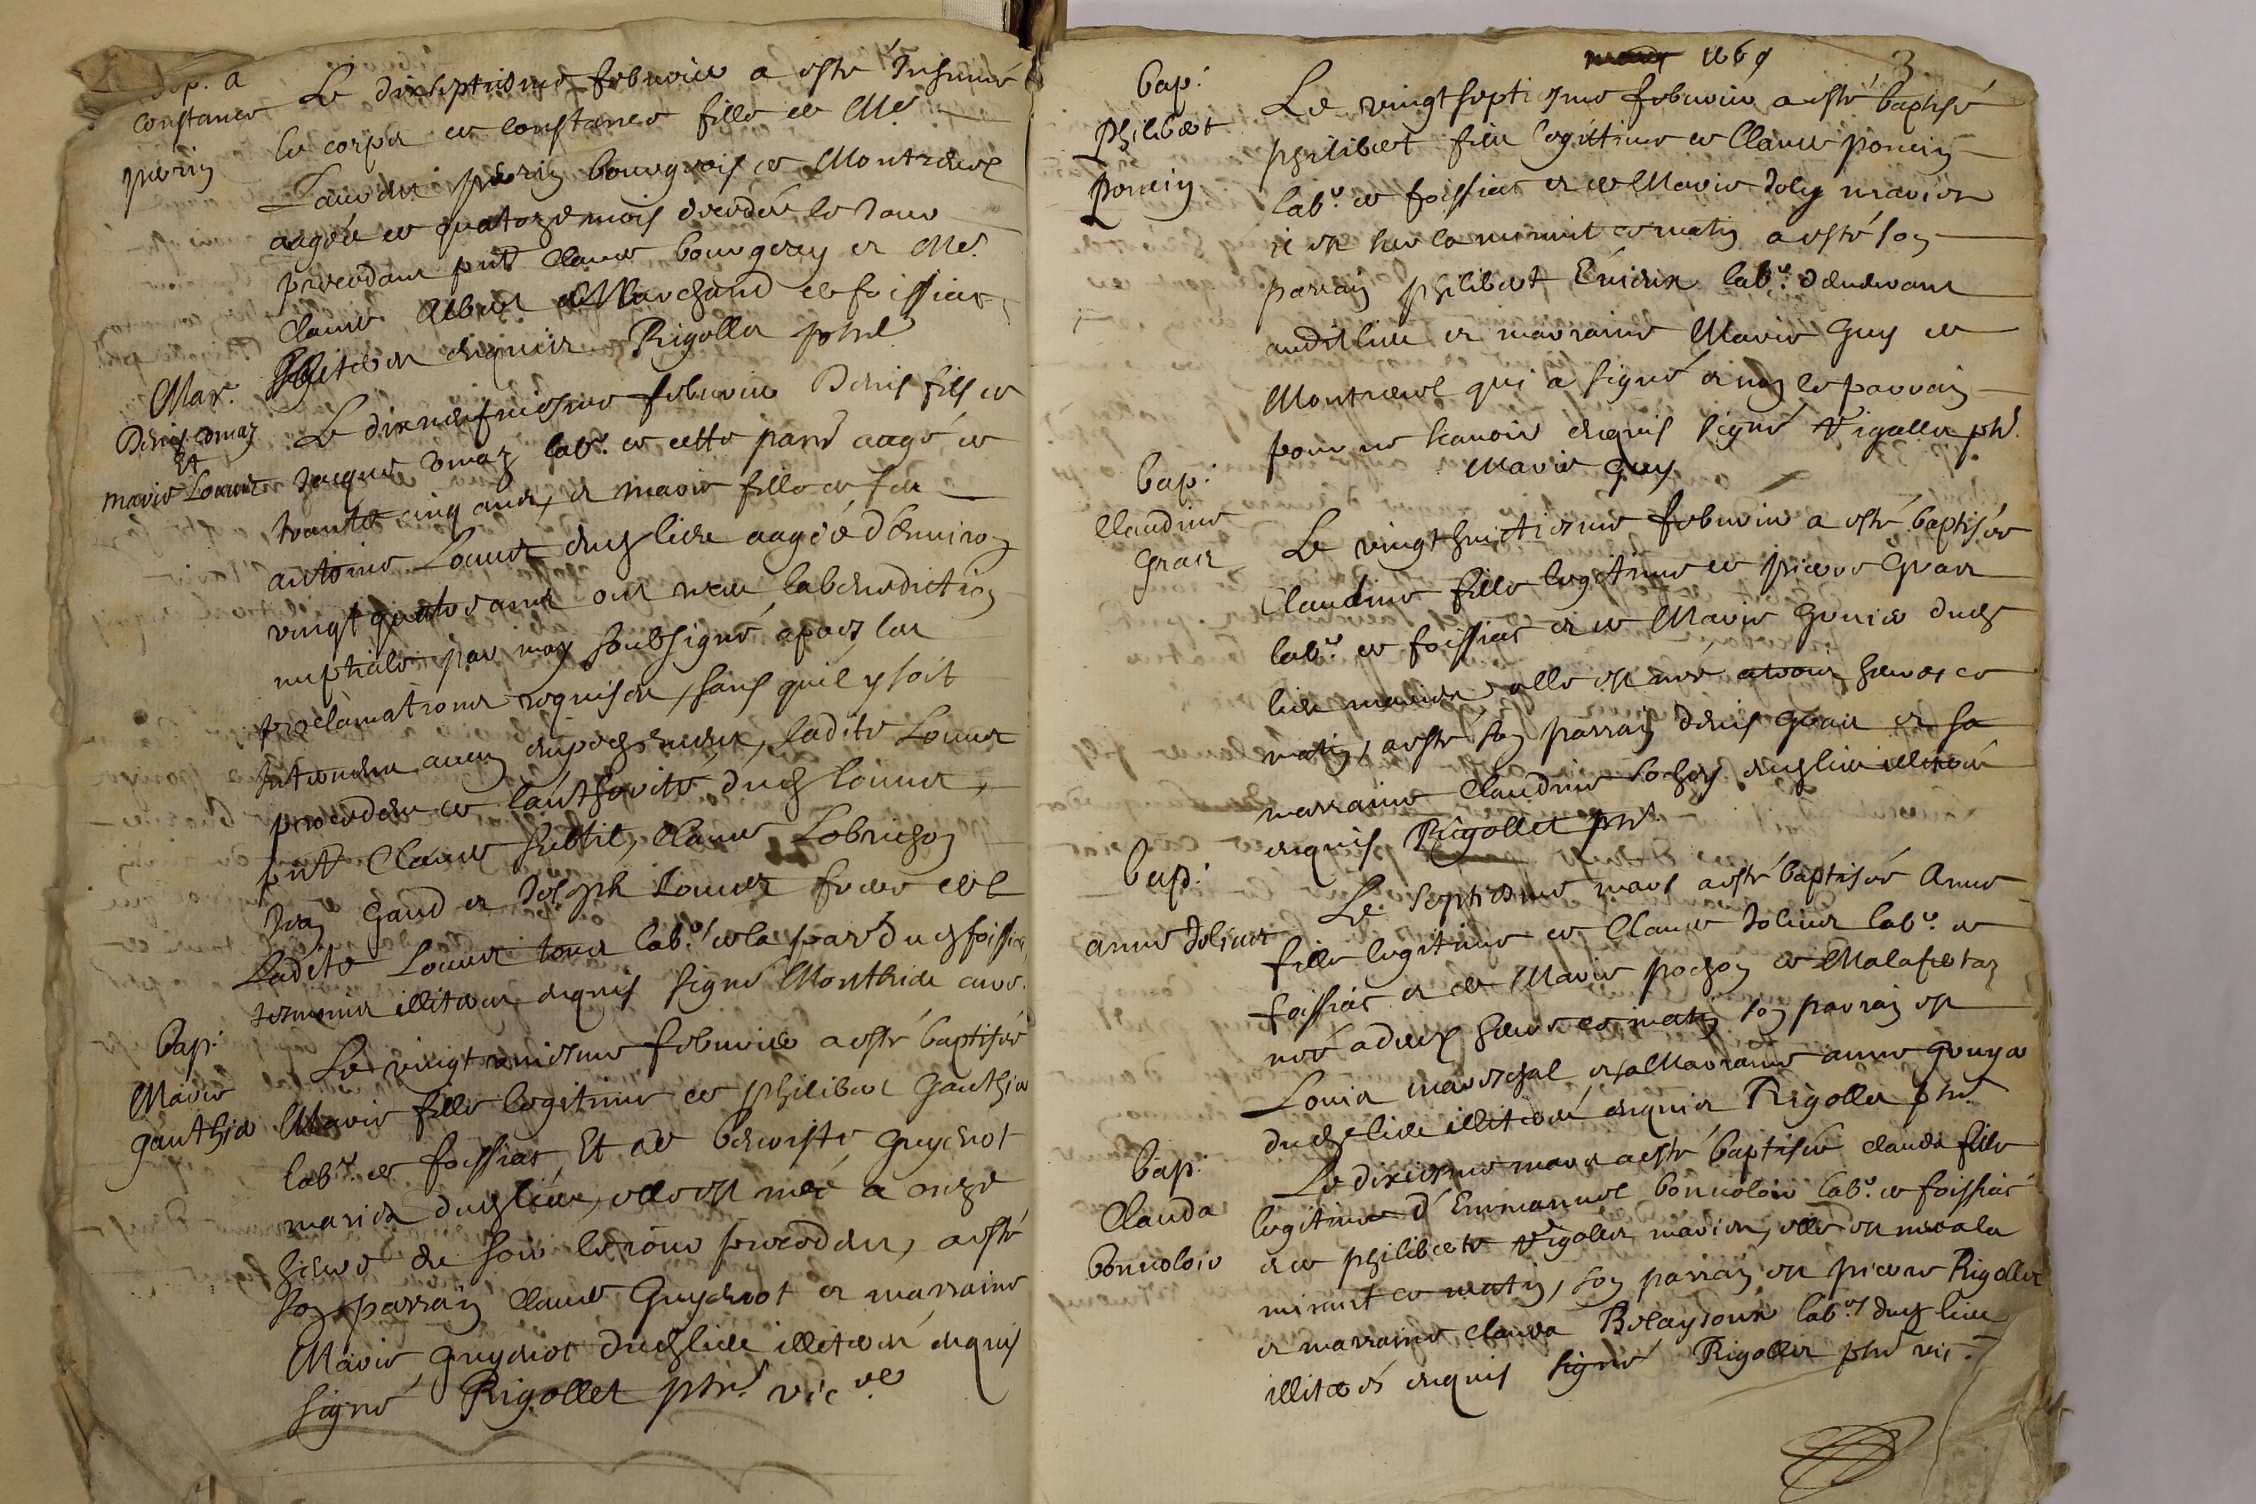 Sep. a
Constance
perrin
Le dixseptiesme febvrier a esté Inhumé
le corps de Constance fille de Me
perrin bourgeois de Montrevel
aagée de quatorze mois decedée le Jour
precedant pnt Claude bourgeey et Me
Claude Marchand de foissiat
enquis Rigollet pbre
Mar.
Denis
Et
marie Louuet
Le dixneufviesme febvrier Denis fils de
Jacque labr de cette parr aagé de
trante cinq ans, et marie fille de feu
antoine Louuet dud lieu aagée d'environ
vingt quatre ans ont receu la benediction
nuptiale par moy soubsigné apres les
proclamations requises, sans quil y soit
Intervenu aucun empeschement, ladite Louuet
procedant de l'authorité dud Louuet,
pnt Claude subtil, Claude Lobrichon
Jean Gaud et Joseph Louuet frere de
Ladite Louuet tous labrs de la parr dud foissiat
illiteres enquis signé Monthide curé
Bap:
Marie
gauthier
Le vingt uniesme febvrier a esté baptisée
Marie fille legitime de philibert Gauthier
labr de foissiat, Et de benoiste Guychot
mariés dud lieu, elle est née a onze
heure du soir le jour precedent, a esté
son parrain Claude Guychot et marraine
Marie Guychot dud lieu illiteré enquis
signé Rigollet pbre vicre
1669
3
Bap:
Philibert
poncin
Le vingt septiesme febvrier a esté baptisé
philibert fils legittime de Claude poncin
labr de foissiat et de Marie Joly mariés
il est né sur la minuit de matin a esté son
parrain philibert labr demeurant
audit lieu et marraine Marie Guy de
Montrevel qui a signé et non le parrain
pour ne scavoir enquis signé Rigollet pbr.
Marie guy
Bap:
Claudine
Grair
Le vingt huictiesme febvrier a esté baptisée
Claudine fille legitime de pierre Grair
labr de foissiat et de Marie dud
lieu mariés, elle est née a trois heures de
matin, a esté son parrain denis Grair et sa
marraine Claudine dud lieu illiteré
enquis Rigollet pbr
Bap:
anne Joliuet
Le septiesme mars a esté baptisée Anne
fille legitime de Claude Joliuet labr de
foissiat et de Marie pochon de Malafretaz
née a deux heures de matin son parrain est
Louis mareschal et sa Marraine anne
dud lieu illiteré enquis Rigollet pbr
Bap:
Clauda
Bonnoloir
Le dixiesme mars a esté baptisée clauda fille
legitime d'Emmanuel bonnoloir labr de foissiat
et de philiberte Rigollet mariés, elle est née a la
minuit de matin, son parrain est pierre Rigollet
et marraine Clauda labrs dud lieu
illiterés enquis signé Rigollet pbr vic.